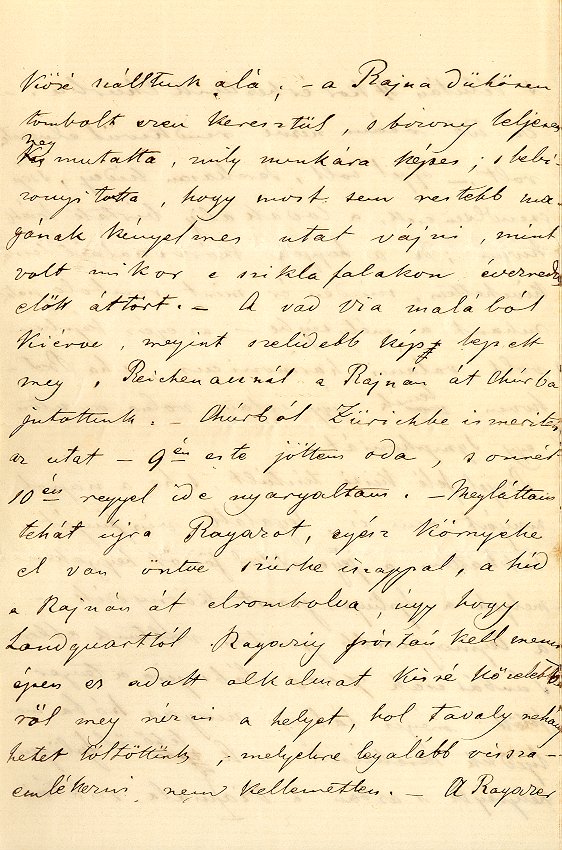 közé szálltunk alá; – a Rajna dühösen
tombolt ezen keresztül, s bizony teljesen
meg mutatta, mily munkára képes; s bebi-
zonyitotta, hogy most sem restebb ma-
gának kényelmes utat vájni, mint
volt mikor e sziklafalakon évezredek
előtt áttört. – A vad via malából
kiérve, megint szelidebb kép lepett
meg, Reichenaunál a Rajnán át Chúrba
jutottunk. – Chúrból Zürichbe ismerites
az utat – 9én este jöttem oda, s onnét
10én reggel ide nyargaltam. – Megláttam
tehát újra Ragazot, egész környéke
el van öntve szürke iszappal, a hid
a Rajnán át elrombolva, úgy hogy
Landquarttól Ragazig póstán kell menni
épen ez adott alkalmat kissé közelebb-
ről meg nézni a helyet, hol tavaly nehány
hetet töltöttünk, melyekre legalább vissza-
emlékezni nem kellemetlen. – A Ragazer